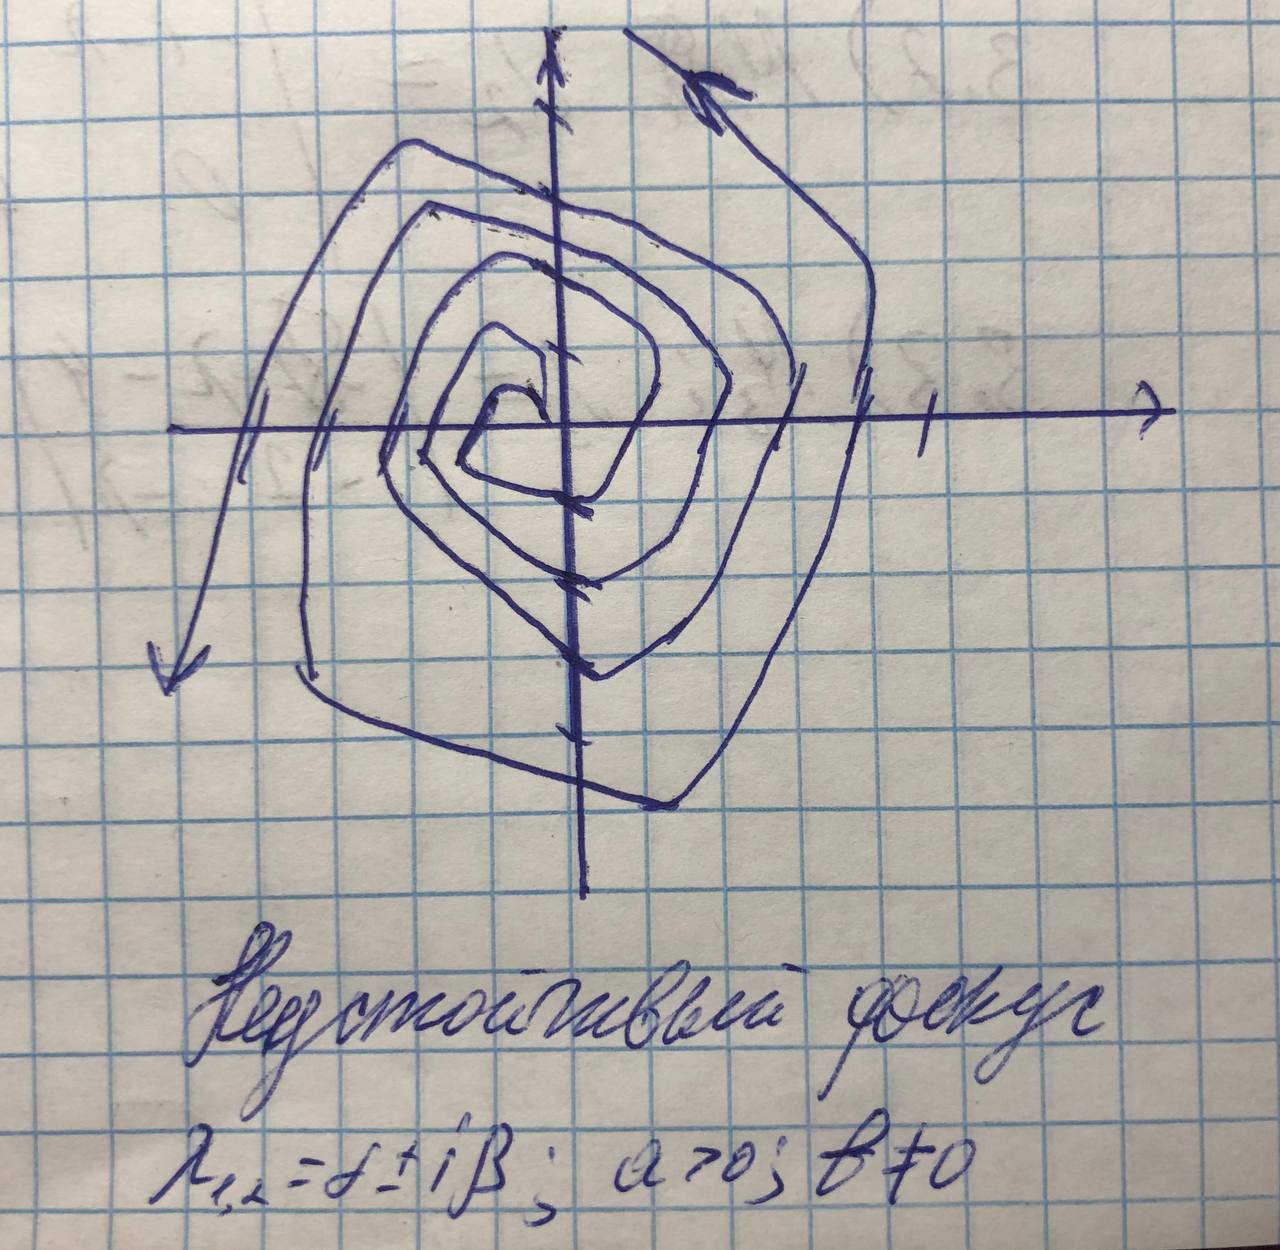 Неустойчивый фокус
λ₁,₂ = α ± iβ ; a > 0; b ≠ 0